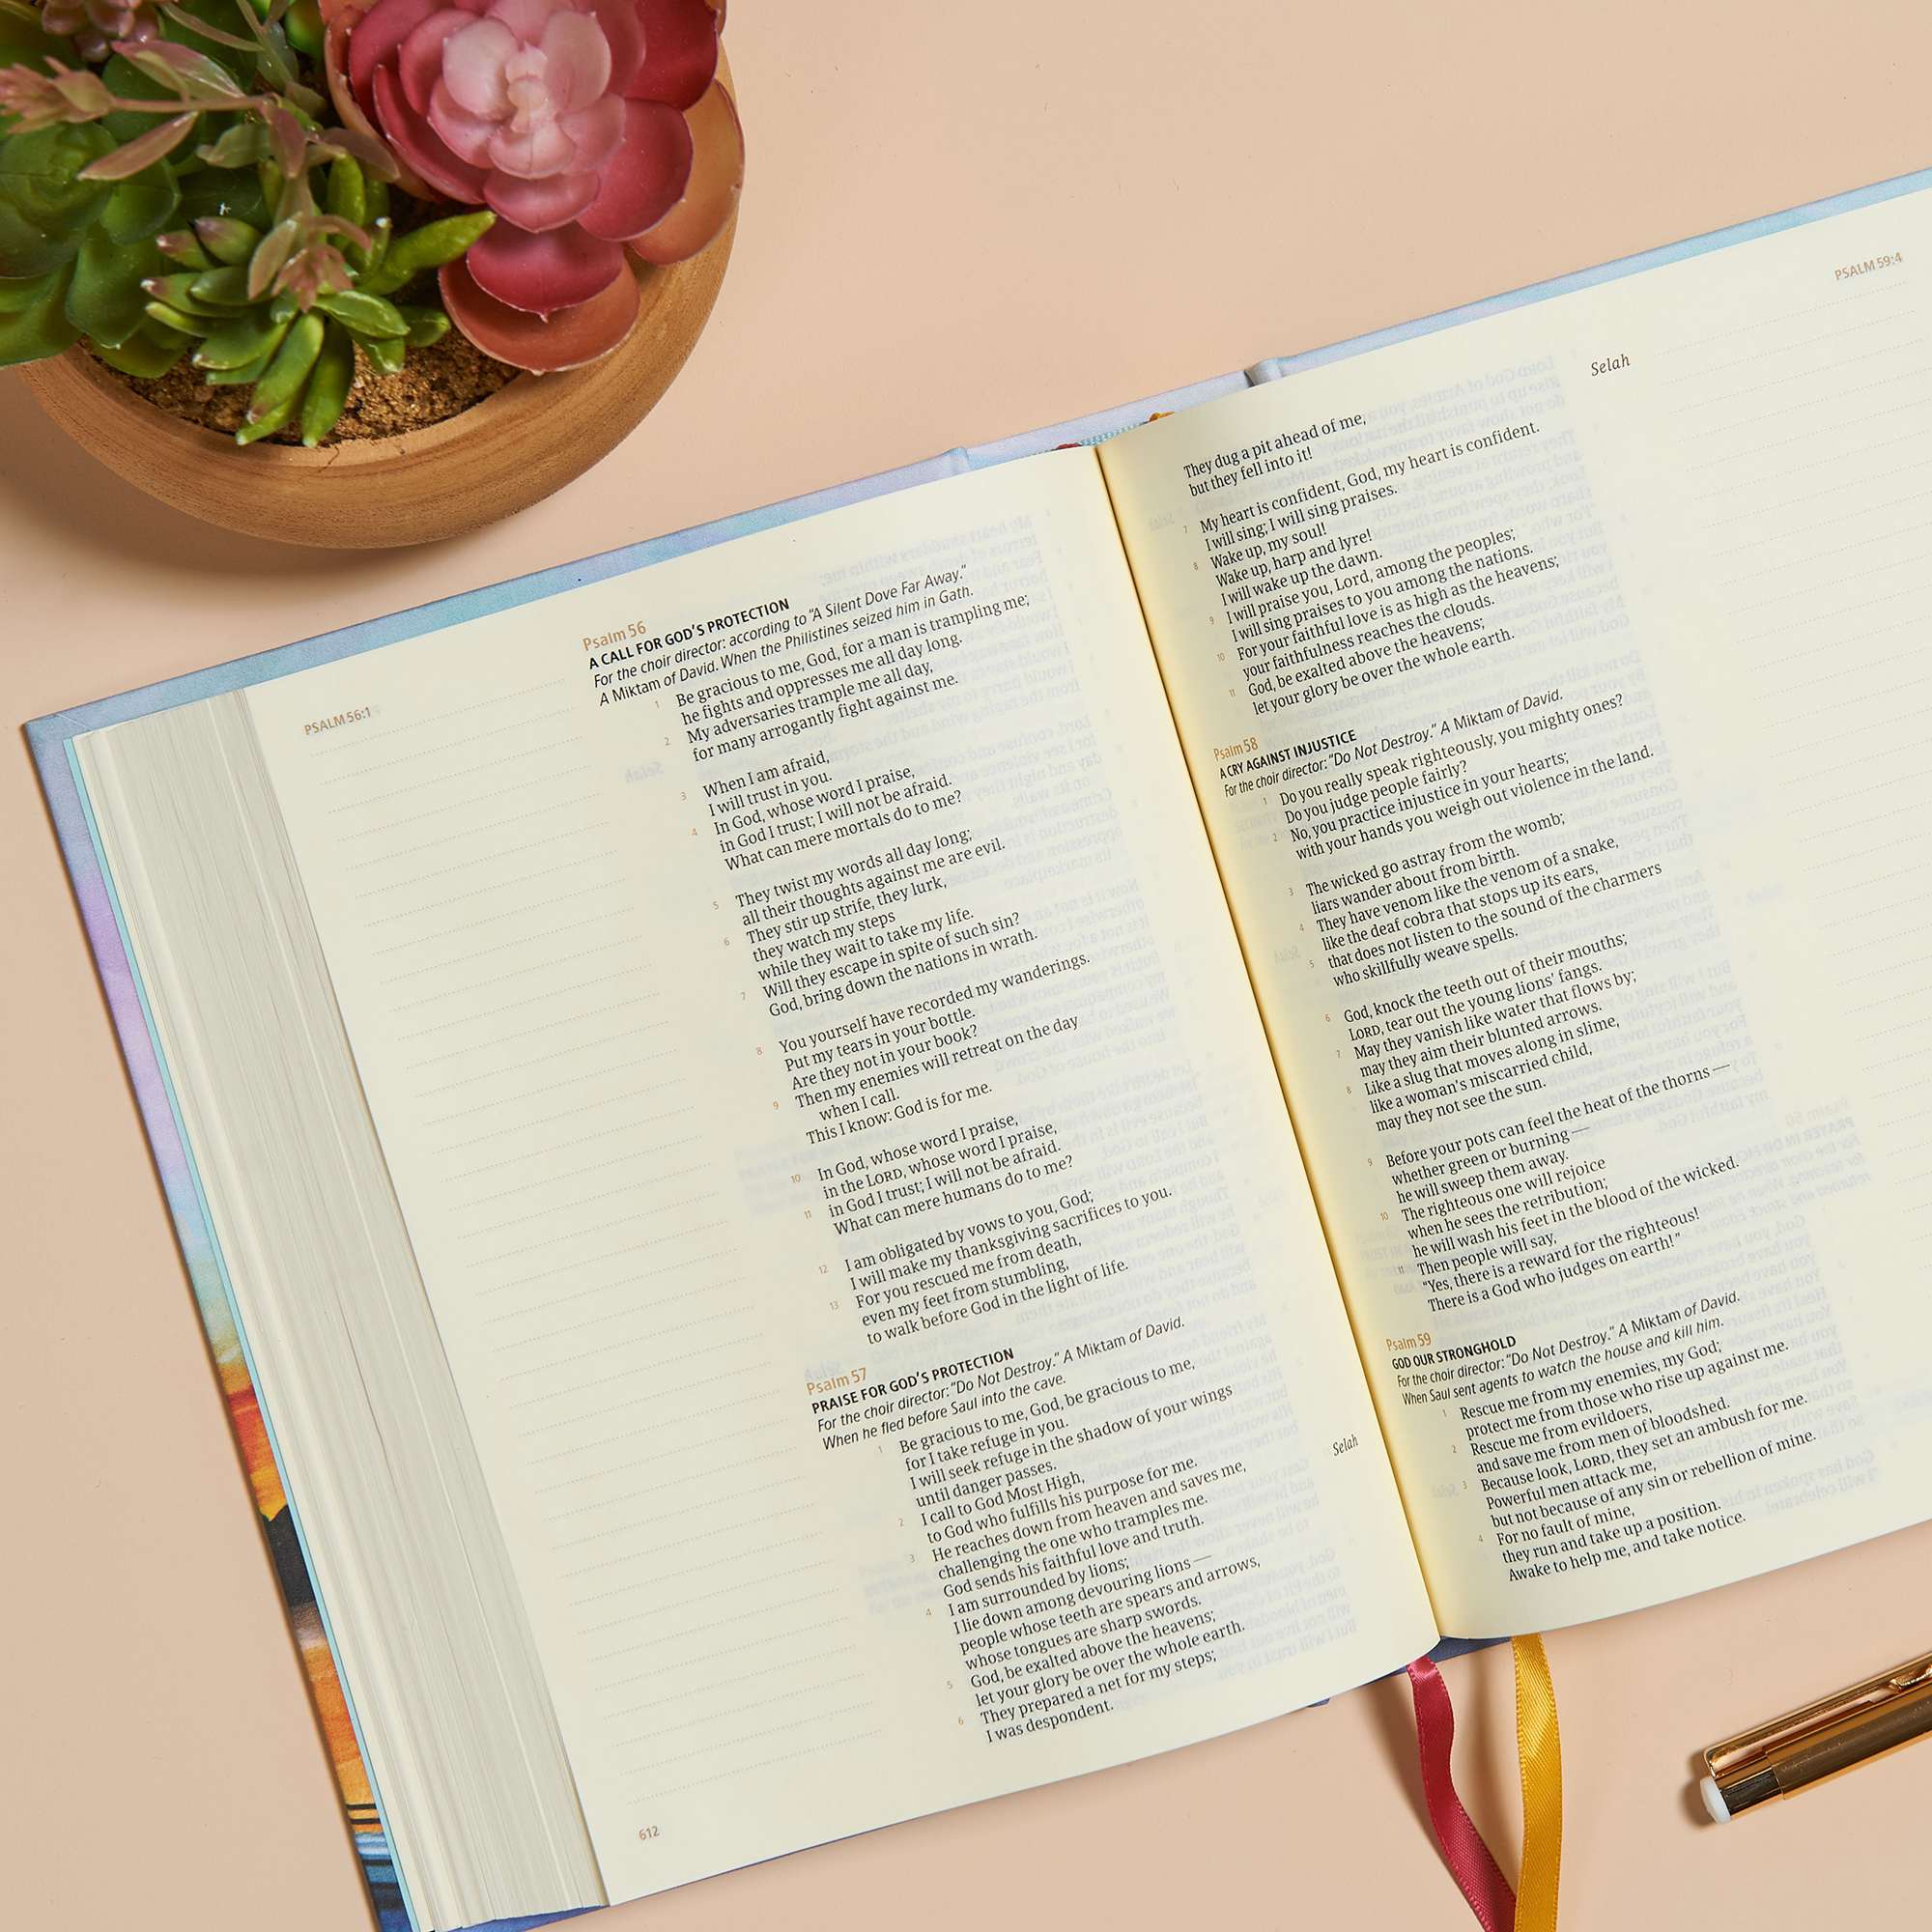 PSALM 56:1
Psalm 56
A CALL FOR GOD'S PROTECTION
For the choir director: according to "A Silent Dove Far Away."
A Miktam of David. When the Philistines seized him in Gath.
1 Be gracious to me, God, for a man is trampling me;
he fights and oppresses me all day long.
2 My adversaries trample me all day,
for many arrogantly fight against me.
3 When I am afraid,
I will trust in you.
4 In God, whose word I praise,
in God I trust; I will not be afraid.
What can mere mortals do to me?
5 They twist my words all day long;
all their thoughts against me are evil.
6 They stir up strife, they lurk,
they watch my steps
while they wait to take my life.
7 Will they escape in spite of such sin?
God, bring down the nations in wrath.
8 You yourself have recorded my wanderings.
Put my tears in your bottle.
Are they not in your book?
9 Then my enemies will retreat on the day
when I call.
This I know: God is for me.
10 In God, whose word I praise,
in the LORD, whose word I praise,
11 in God I trust; I will not be afraid.
What can mere humans do to me?
12 I am obligated by vows to you, God;
I will make my thanksgiving sacrifices to you.
13 For you rescued me from death,
even my feet from stumbling,
to walk before God in the light of life.
Psalm 57
PRAISE FOR GOD'S PROTECTION
For the choir director: "Do Not Destroy." A Miktam of David.
When he fled before Saul into the cave.
1 Be gracious to me, God, be gracious to me,
for I take refuge in you.
I will seek refuge in the shadow of your wings
until danger passes.
2 I call to God Most High,
to God who fulfills his purpose for me.
3 He reaches down from heaven and saves me,
challenging the one who tramples me. Selah
God sends his faithful love and truth.
4 I am surrounded by lions;
I lie down among devouring lions —
people whose teeth are spears and arrows,
whose tongues are sharp swords.
5 God, be exalted above the heavens;
let your glory be over the whole earth.
6 They prepared a net for my steps;
I was despondent.
612
PSALM 59:4
They dug a pit ahead of me,
but they fell into it! Selah
7 My heart is confident, God, my heart is confident.
I will sing; I will sing praises.
8 Wake up, my soul!
Wake up, harp and lyre!
I will wake up the dawn.
9 I will praise you, Lord, among the peoples;
I will sing praises to you among the nations.
10 For your faithful love is as high as the heavens;
your faithfulness reaches the clouds.
11 God, be exalted above the heavens;
let your glory be over the whole earth.
Psalm 58
A CRY AGAINST INJUSTICE
For the choir director: "Do Not Destroy." A Miktam of David.
1 Do you really speak righteously, you mighty ones?
Do you judge people fairly?
2 No, you practice injustice in your hearts;
with your hands you weigh out violence in the land.
3 The wicked go astray from the womb;
liars wander about from birth.
4 They have venom like the venom of a snake,
like the deaf cobra that stops up its ears,
5 that does not listen to the sound of the charmers
who skillfully weave spells.
6 God, knock the teeth out of their mouths;
LORD, tear out the young lions' fangs.
7 May they vanish like water that flows by;
may they aim their blunted arrows.
8 Like a slug that moves along in slime,
like a woman's miscarried child,
may they not see the sun.
9 Before your pots can feel the heat of the thorns —
whether green or burning —
he will sweep them away.
10 The righteous one will rejoice
when he sees the retribution;
he will wash his feet in the blood of the wicked.
11 Then people will say,
"Yes, there is a reward for the righteous!
There is a God who judges on earth!"
Psalm 59
GOD OUR STRONGHOLD
For the choir director: "Do Not Destroy." A Miktam of David.
When Saul sent agents to watch the house and kill him.
1 Rescue me from my enemies, my God;
protect me from those who rise up against me.
2 Rescue me from evildoers,
and save me from men of bloodshed.
3 Because look, LORD, they set an ambush for me.
Powerful men attack me,
but not because of any sin or rebellion of mine.
4 For no fault of mine,
they run and take up a position.
Awake to help me, and take notice.